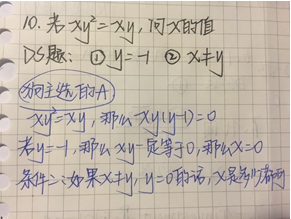 10. 若xy²=xy, 问x的值
DS题: ① y=-1 ② x≠y
狗主选的A
xy²=xy, 那么xy(y-1)=0
若y=-1, 那么xy一定等于0, 那么x=0
条件二: 如果x≠y, y=0的话, x是多少都可